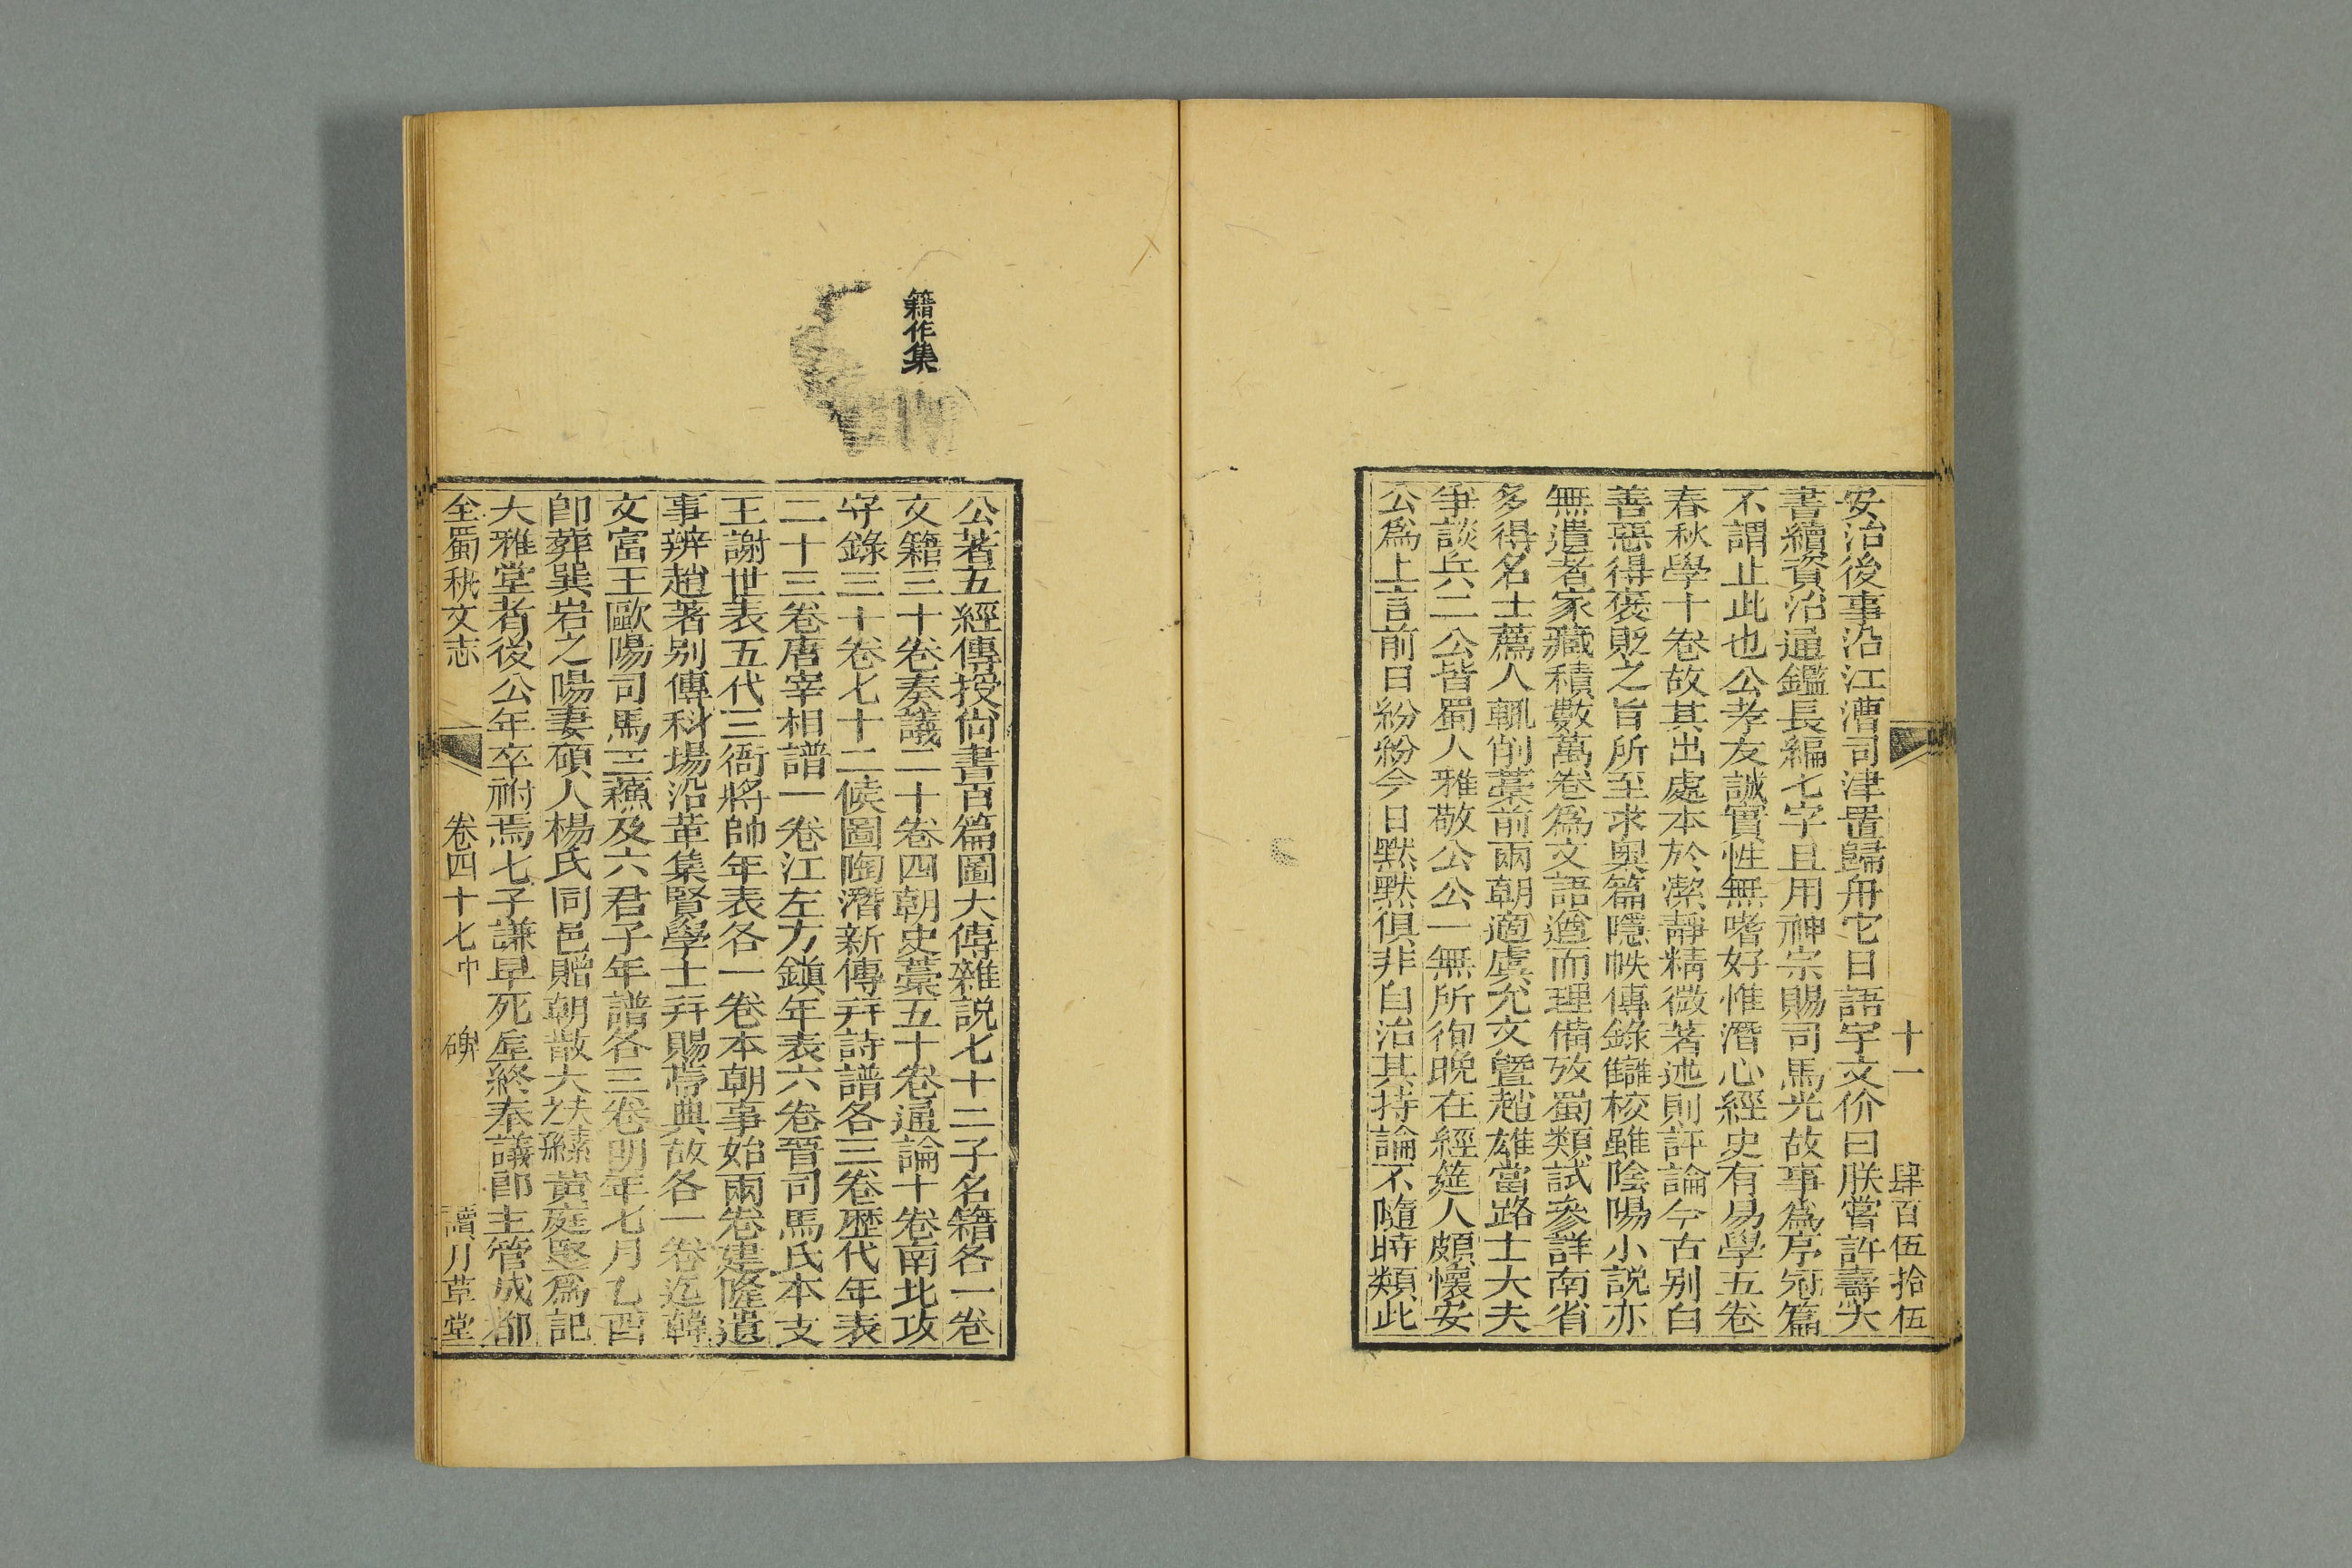 十一　肆百伍拾伍
安治後事沿江漕司津置歸舟它日語宇文价曰朕嘗許燾大
書續資治通鑑長編七字且用神宗賜司馬光故事爲序冠篇
不謂止此也公孝友誠實性無嗜好惟潛心經史有易學五卷
春秋學十卷故其出處本於潔靜精微著述則評論今古别白
善惡得褒貶之旨所至求奥篇隱帙傳錄讎校雖陰陽小說亦
無遺者家藏積數萬卷爲文語遒而理備攷蜀類試參詳南省
多得名士薦人輒削藁前兩朝適虞允文曁趙雄當路士大夫
爭談兵二公皆蜀人雅敬公公一無所徇晚在經筵人頗懷安
公爲上言前日紛紛今日默默俱非自治其持論不隨時類此
籍作集
公著五經傳授尙書百篇圖大傳雜說七十二子名籍各一卷
文籍三十卷奏議二十卷四朝史藁五十卷通論十卷南北攻
守錄三十卷七十二候圖陶潛新傳幷詩譜各三卷歷代年表
二十三卷唐宰相譜一卷江左方鎭年表六卷晉司馬氏本支
王謝世表五代三衙將帥年表各一卷本朝事始兩卷建隆遺
事辨趙著别傳科場沿革集賢學士幷賜帶典故各一卷迄韓
文富王歐陽司馬三蘓及六君子年譜各三卷明年七月乙酉
卽葬巽岩之陽妻碩人楊氏同邑贈朝散大夫素之孫黄庭堅爲記
大雅堂者後公年卒祔焉七子謙早死垕終奉議郎主管成都
全蜀秇文志　卷四十七中　碑　讀月草堂